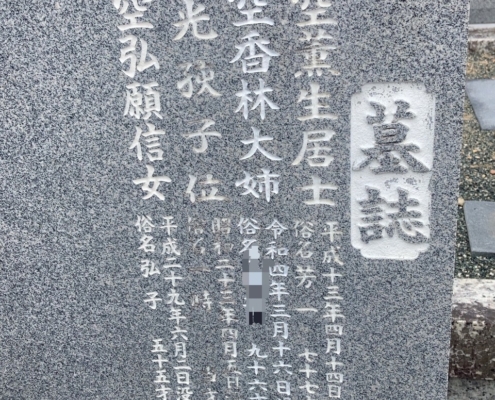 墓誌
空薫生居士
平成十三年四月十四日
俗名芳一 七十七
空香林大姉
令和四年三月十六日没
俗名 九十六才
光荻子位
昭和二十三年四月五日
俗名 時 当才
空弘願信女
平成二十九年六月二日没
俗名弘子 五十五才